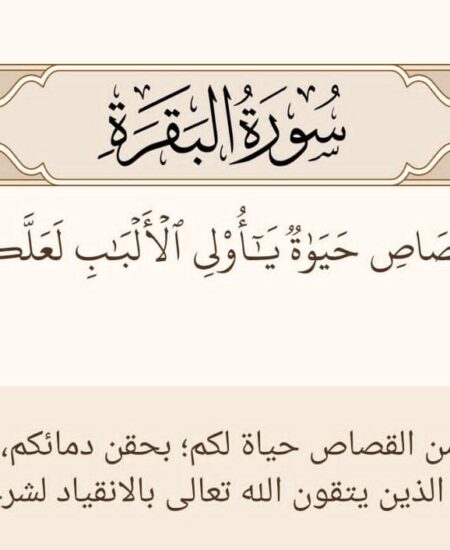 سُورَةُ البَقَرَةِ
حَيَوٰةٌ يَـٰٓأُو۟لِى ٱلْأَلْبَـٰبِ
القصاص حياة لكم؛ بحقن دمائكم،
الذين يتقون الله تعالى بالانقياد